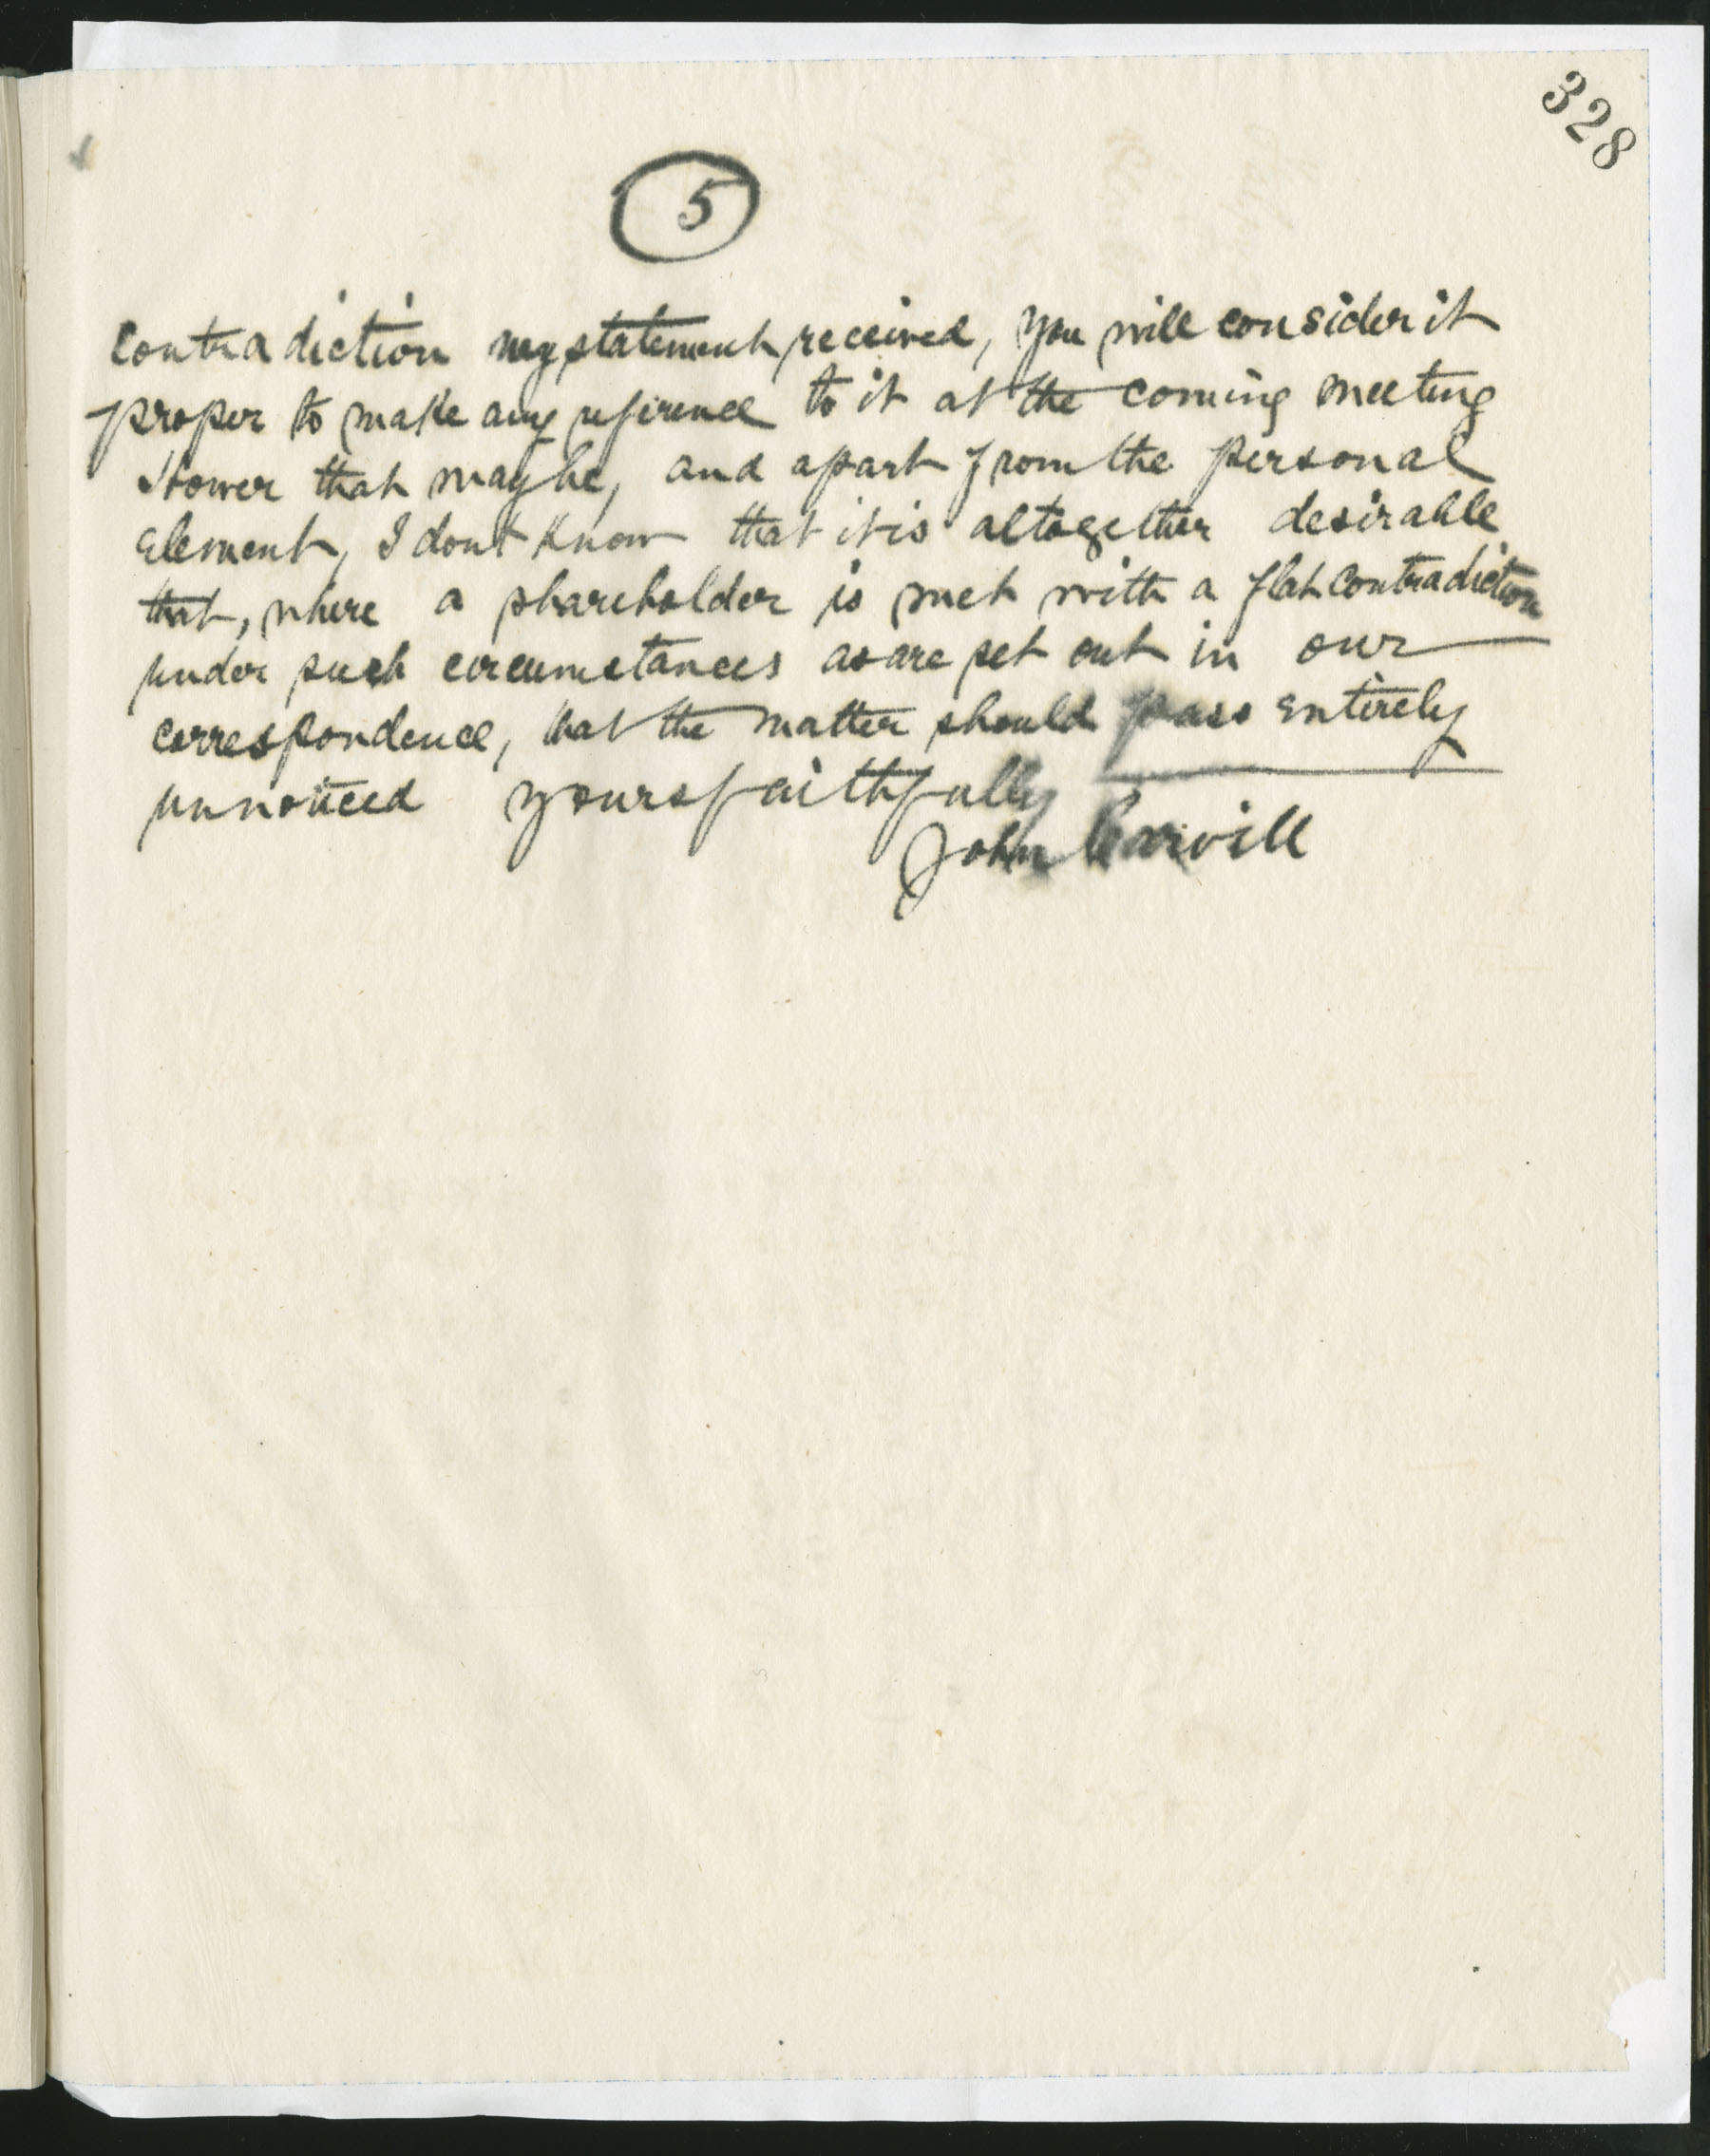 328
5
contradiction my statement received, you will consider it
proper to make any reference to it at the coming meeting
However that may be, and apart from the personal
element, I dont know that it is altogether desirable
that, where a shareholder is met with a flat contradiction
under such circumstances as are set out in our
correspondence, that the matter should pass entirely
unnoticed yours faithfully
John Carvill